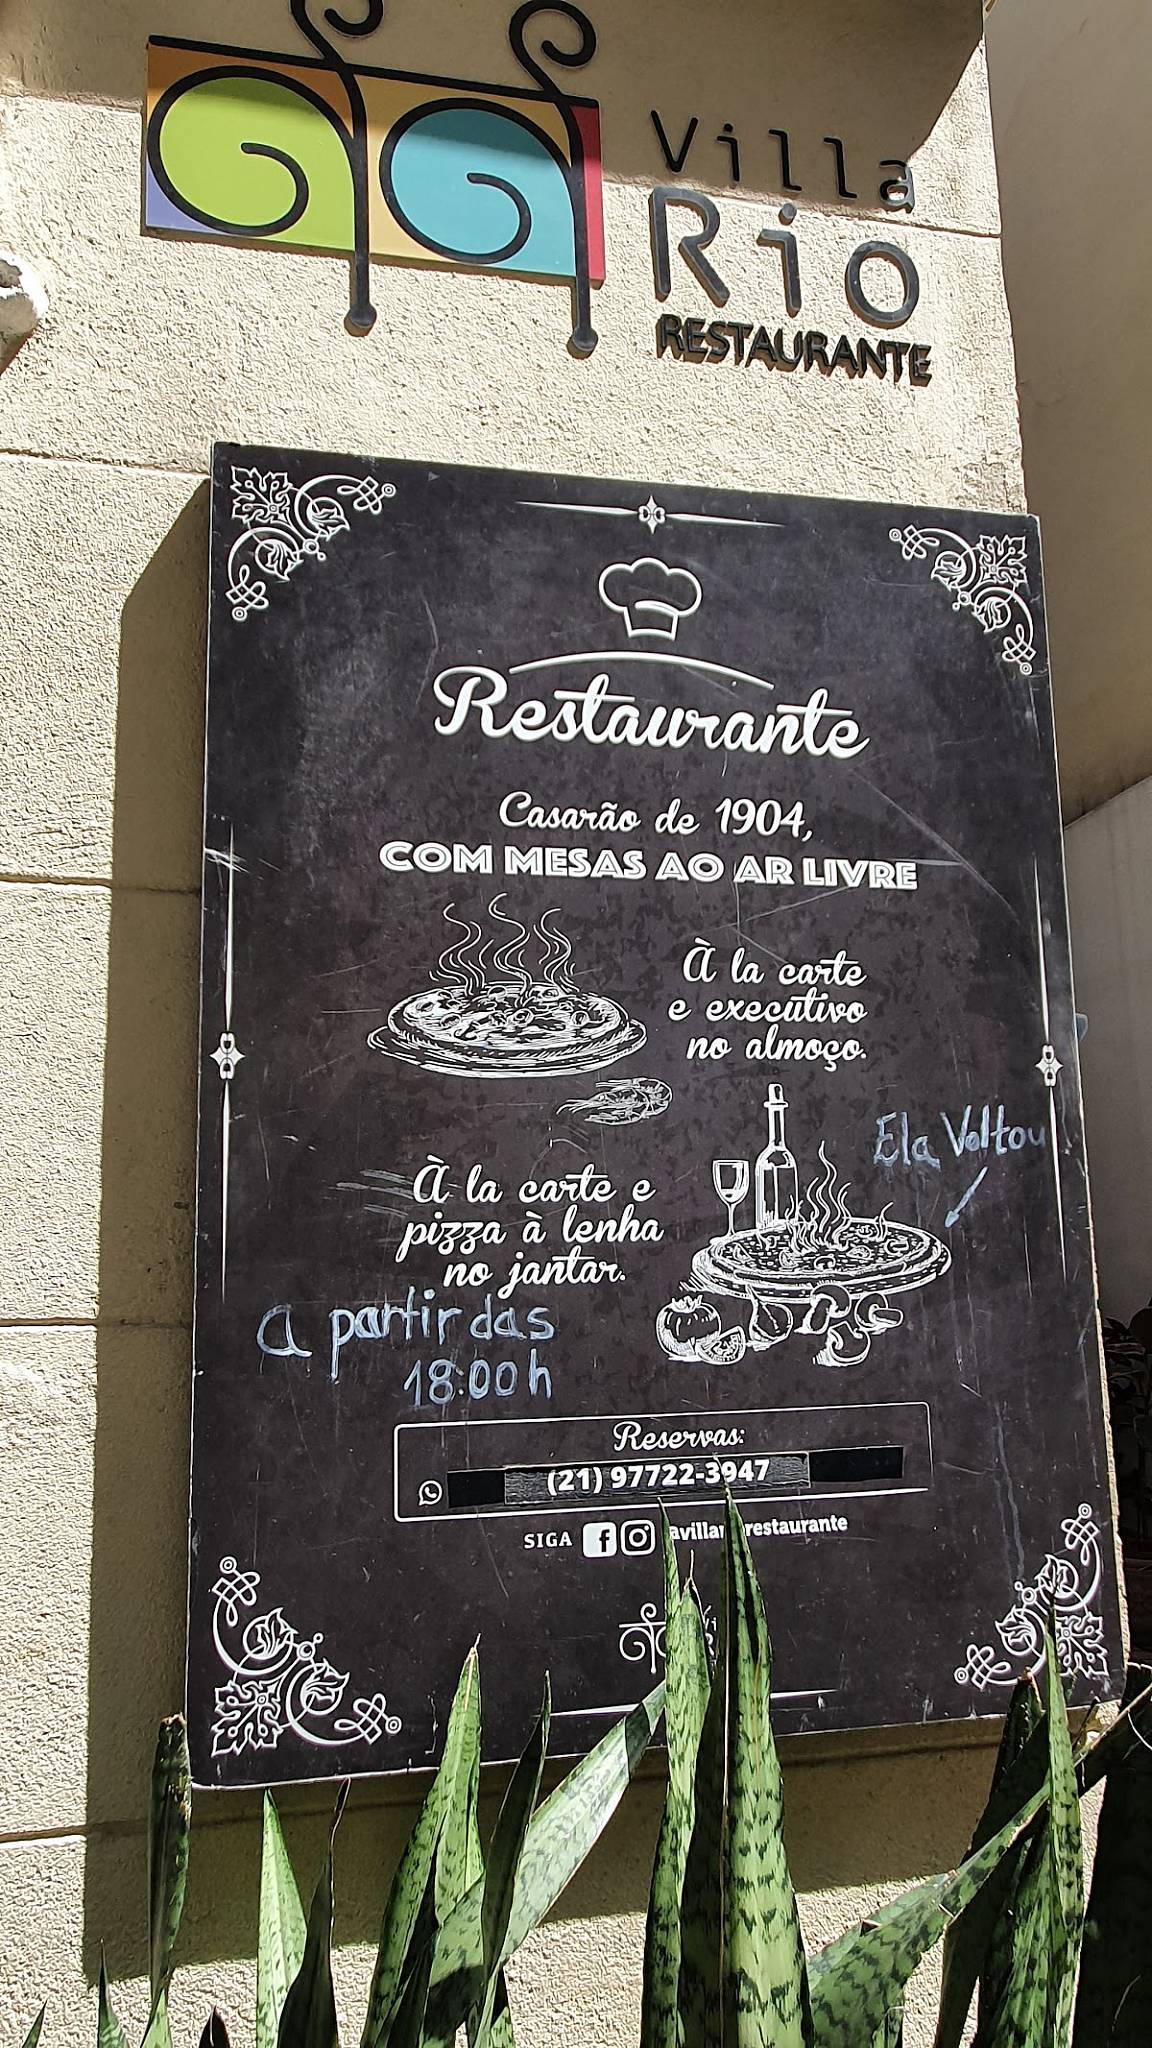 Villa
Rio
RESTAURANTE
Restaurante
Casarão de 1904,
COM MESAS AO AR LIVRE
À la carte
e executivo
no almoço.
Ela Voltou
À la carte e
pizza à lenha
no jantar.
a partir das
18:00 h
Reservas:
(21) 97722-3947
SIGA